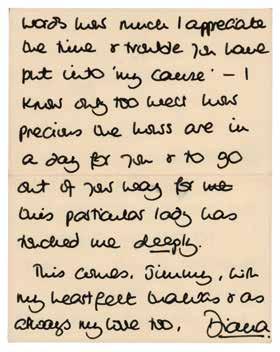 words how much I appreciate
the time & trouble you have
put into 'my cause' – I
know only too well how
precious the hours are in
a day for you & to go
out of your way for me
this particular lady has
touched me deeply.
This comes, Jimmy, with
my heartfelt thanks & as
always my love too, Diana.